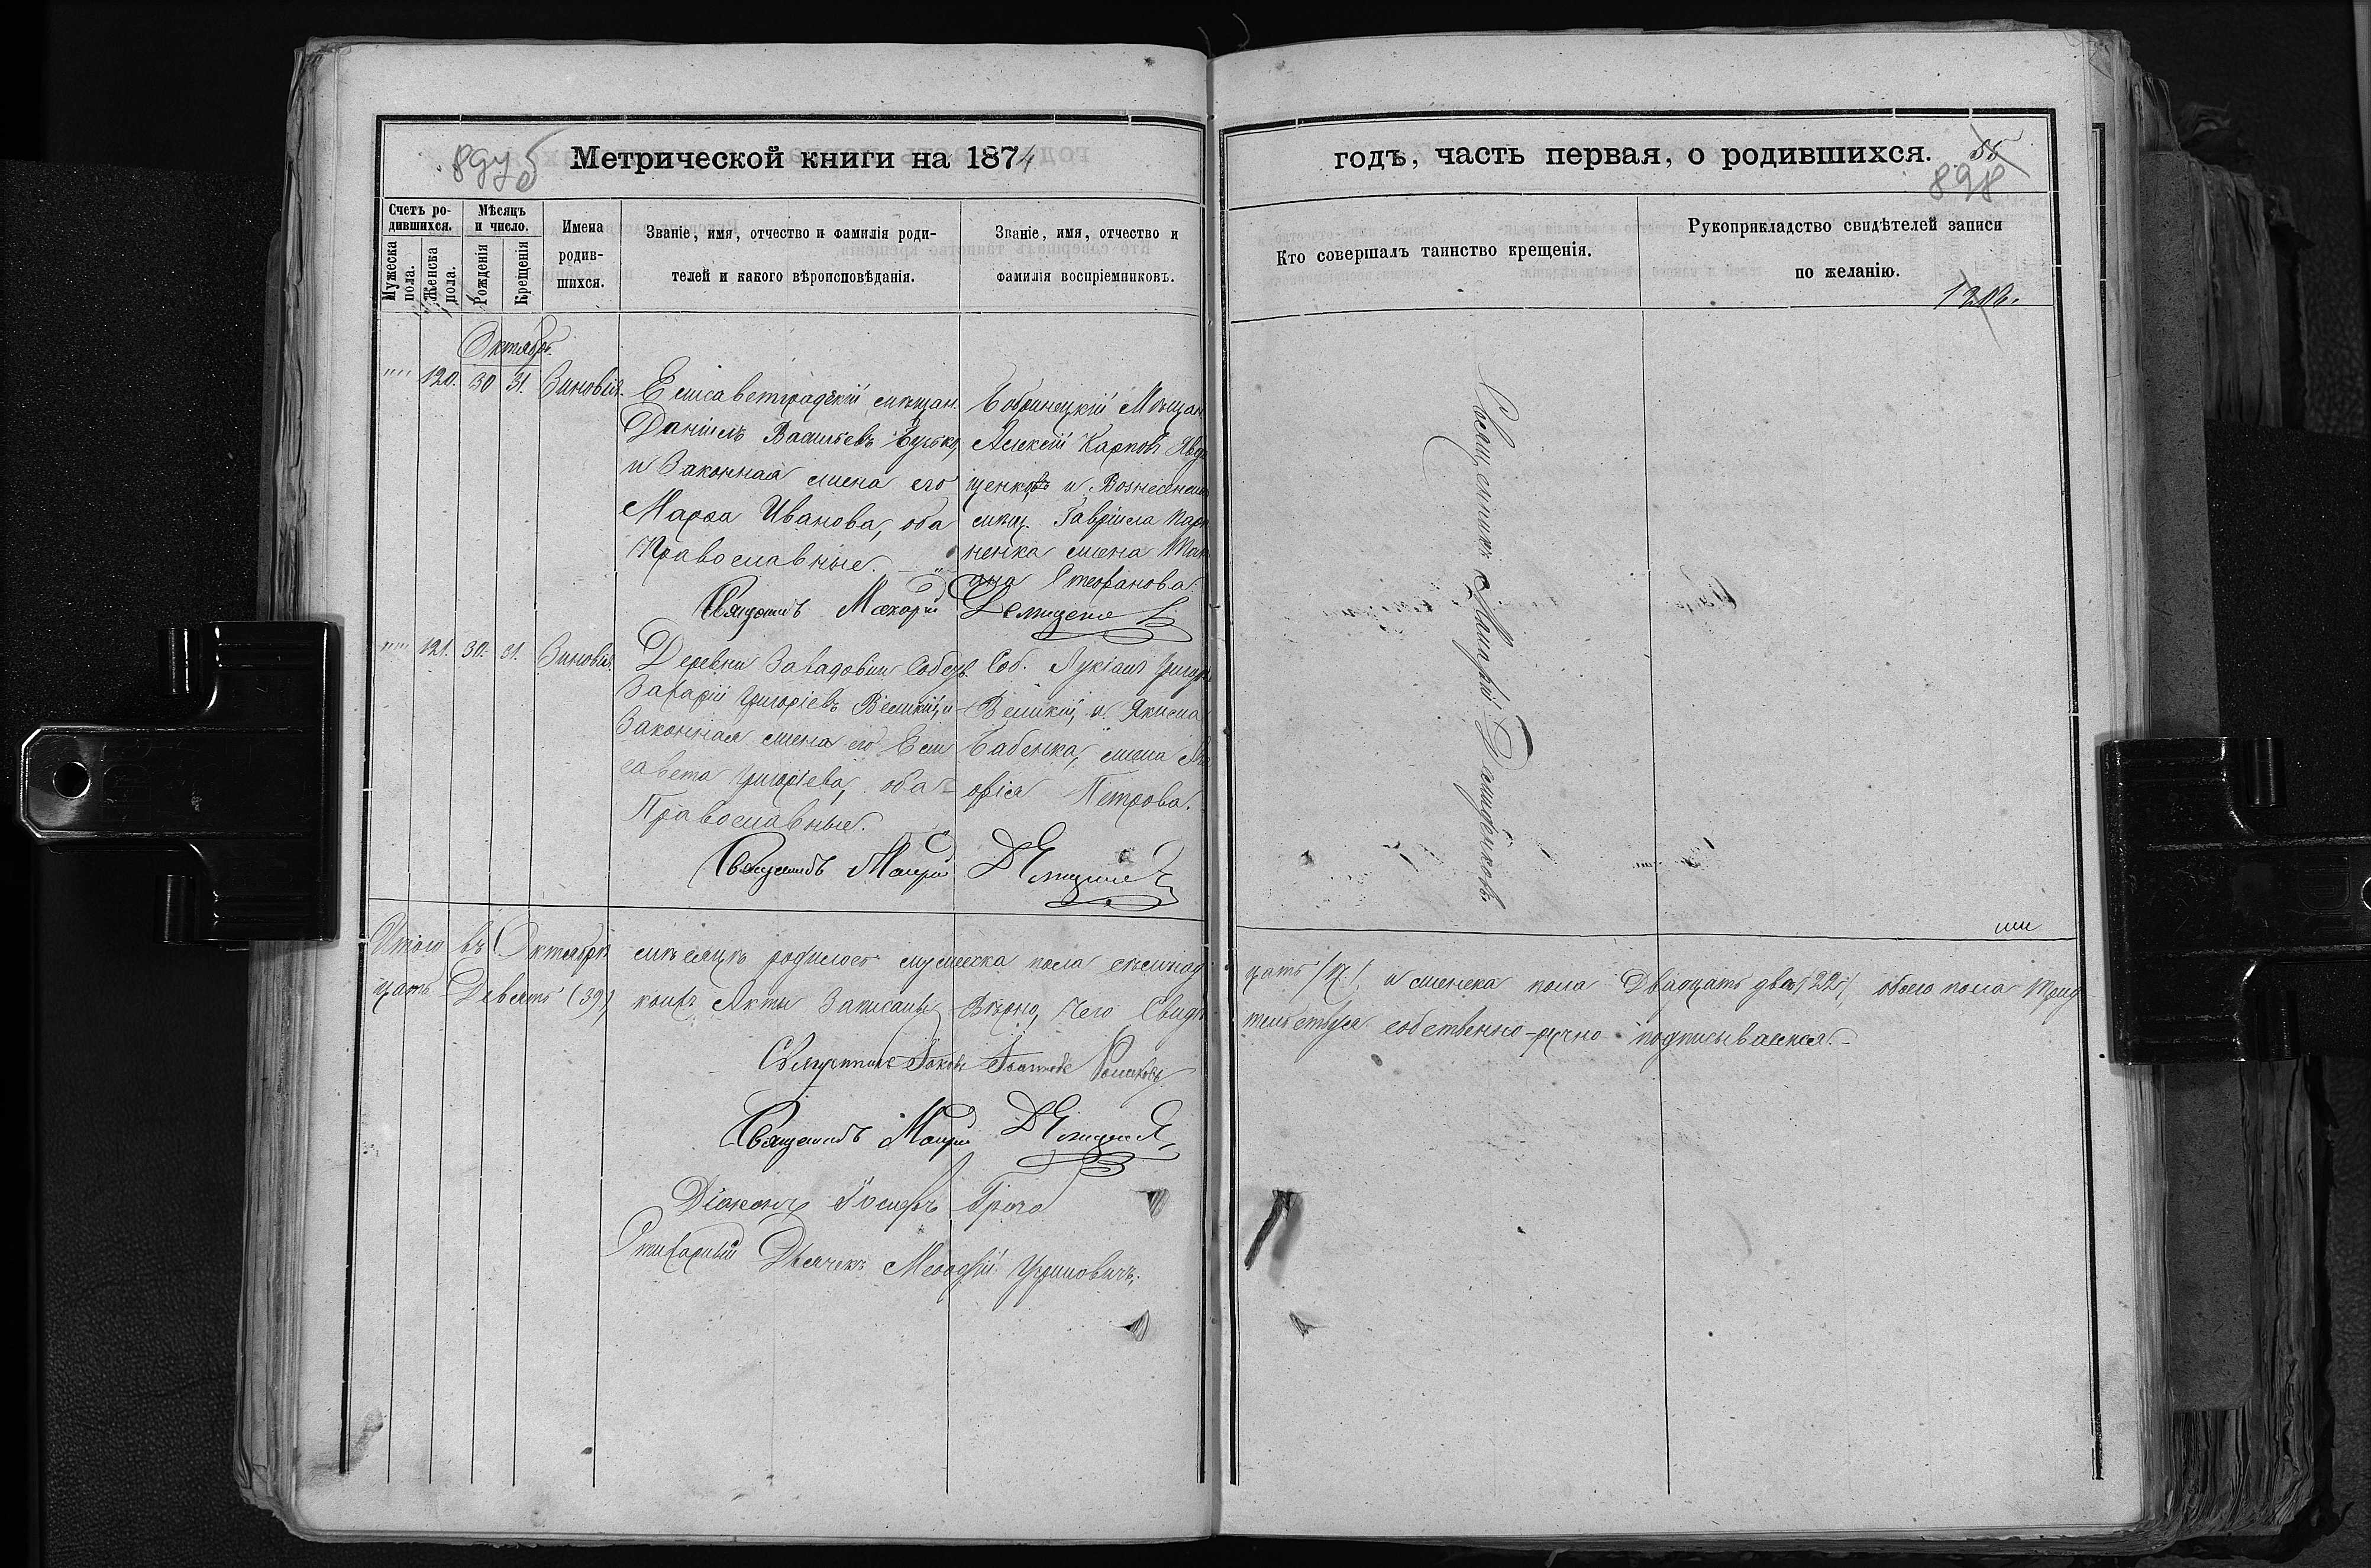 Метрической книги на 1874
годъ, часть первая, о родившихся.
55
898
Счетъ ро-
дившихся.
Мужеска пола.
Женска пола.
Мѣсяцъ
и число.
Рожденія
Крещенія
Имена
родив-
шихся.
Званіе, имя, отчество и фамилія роди-
телей и какого вѣроисповѣданія.
Званіе, имя, отчество и
фамилія воспріемниковъ.
Кто совершалъ таинство крещенія.
Рукоприкладство свидѣтелей записи
по желанію.
Октябрь.
"" 120. 30 31. Зиновія.
Елисаветградскій мѣщан.
Даніилъ Васильевъ
и Законная жена его
Марѳа Иванова, оба
Православные.
Бобринецкій Мѣщан
Алексій Карповъ
и Вознесенск
мѣщ. Гавріила
ненка жена
Стефанова.
Священникъ Макарій
"" 121. 30. 31. Зиновія.
Деревни Завадовки Собств.
Захарій Григоріевъ Великій, и
Законная жена его Ели
савета Григоріева, оба
Православные.
Соб. Лукіанъ Григор
Великій, и Якима
Бабенка, жена
офія Петрова.
Священникъ Макарій
Священникъ Макарій Демиденковъ
Итого въ Октябрѣ мѣсяцѣ родилось мужеска пола семнад
цать /17/, и женска пола Двадцать два /22/, обоего пола Трид
цать Девять (39) коихъ Акты Записаны Вѣрно, Чего Свидѣ
тельствуя собственно-ручно подписываемся.
Священникъ Іаковъ
Священникъ Макарій
Діаконъ Іосифъ
Стихарный Дьячекъ Меѳодій